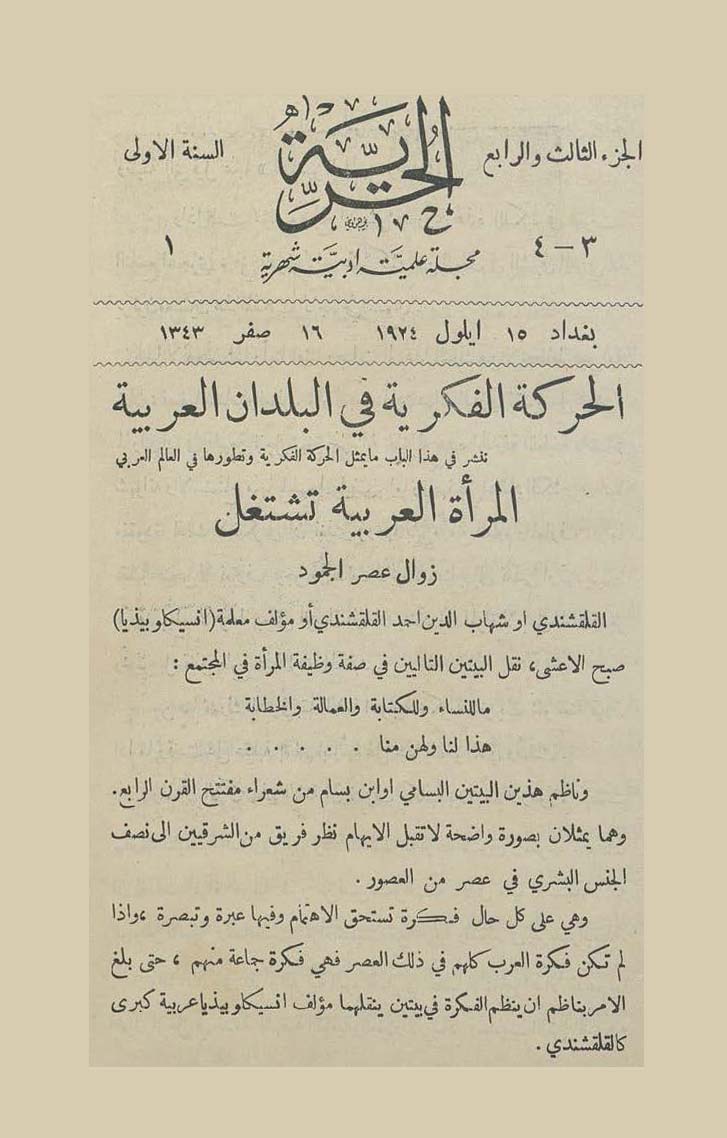 الجزء الثالث والرابع
الحرية
السنة الاولى
٣ – ٤
١
مجلة علمية ادبية شهرية
بغداد ١٥ ايلول ١٩٢٤ ١٦ صفر ١٣٤٣
الحركة الفكرية في البلدان العربية
ننشر في هذا الباب مايمثل الحركة الفكرية وتطورها في العالم العربي
المرأة العربية تشتغل
زوال عصر الجمود
القلقشندي او شهاب الدين احمد القلقشندي أو مؤلف معلمة (انسيكلوبيذيا)
صبح الاعشى، نقل البيتين التاليين في صفة وظيفة المرأة في المجتمع :
ماللنساء وللكتابة والعمالة والخطابة
هذا لنا ولهن منا . . . . . .
وناظم هذين البيتين البسامي اوابن بسام من شعراء مفتتح القرن الرابع.
وهما يمثلان بصورة واضحة لاتقبل الايهام نظر فريق من الشرقيين الى نصف
الجنس البشري في عصر من العصور .
وهي على كل حال فكرة تستحق الاهتمام وفيها عبرة وتبصرة ، واذا
لم تكن فكرة العرب كلهم في ذلك العصر فهي فكرة جماعة منهم ، حتى بلغ
الامر بناظم ان ينظم الفكرة في بيتين ينقلهما مؤلف انسيكلوبيذيا عربية كبرى
كالقلقشندي .